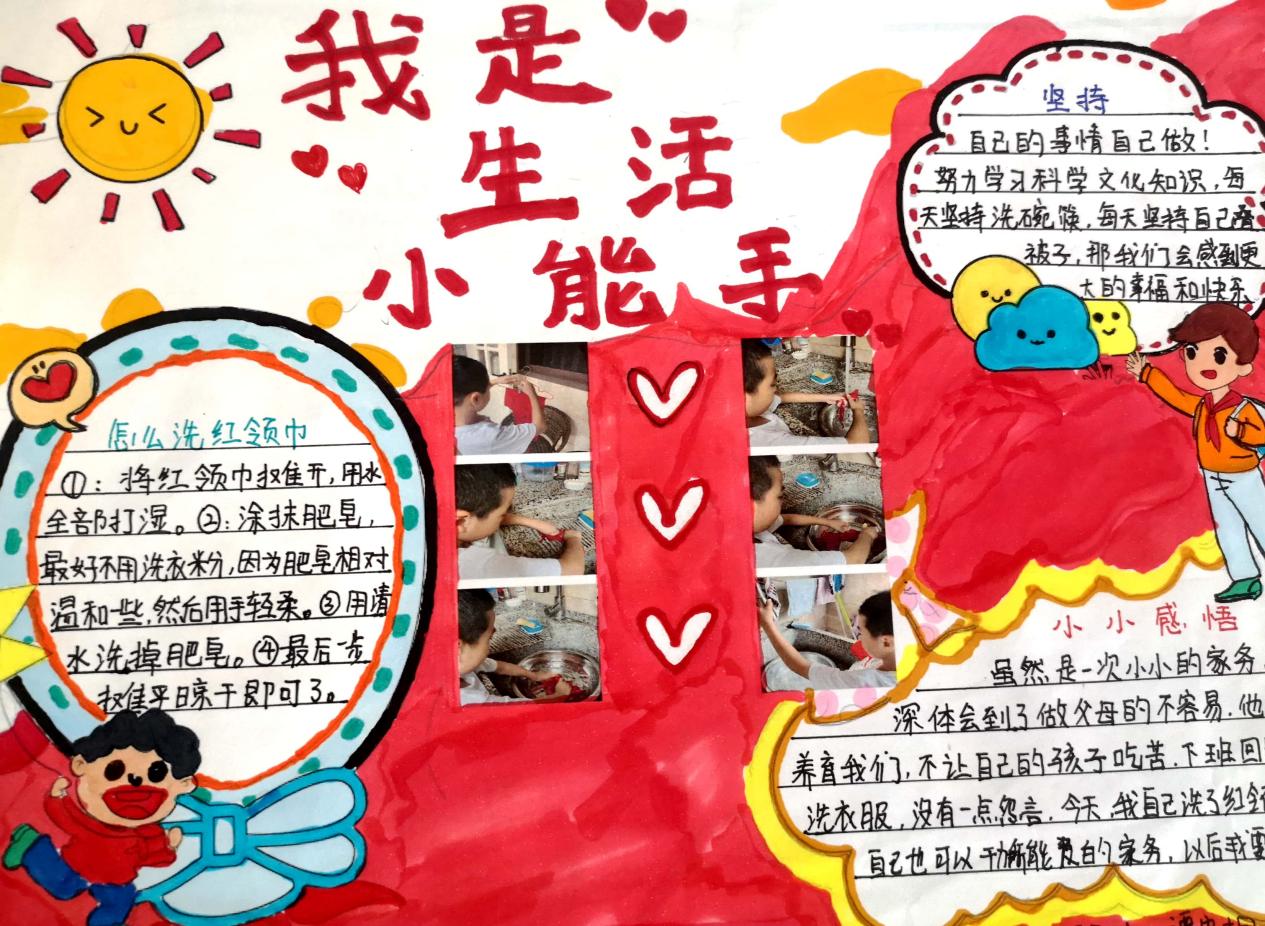 我是
生活
小能手
坚持
自己的事情自己做！
努力学习科学文化知识，每
天坚持洗碗筷，每天坚持自己叠
被子，那我们会感到更
大的幸福和快乐
怎么洗红领巾
①：将红领巾摊开，用水
全部打湿。②：涂抹肥皂，
最好不用洗衣粉，因为肥皂相对
温和一些，然后用手轻柔。③用清
水洗掉肥皂。④最后一步
摊平日晾干即可了。
小小感悟
虽然是一次小小的家务，
深体会到了做父母的不容易．他
养育我们，不让自己的孩子吃苦．下班回
洗衣服，没有一点怨言．今天，我自己洗了红领
自己也可以干所能及的家务，以后我要